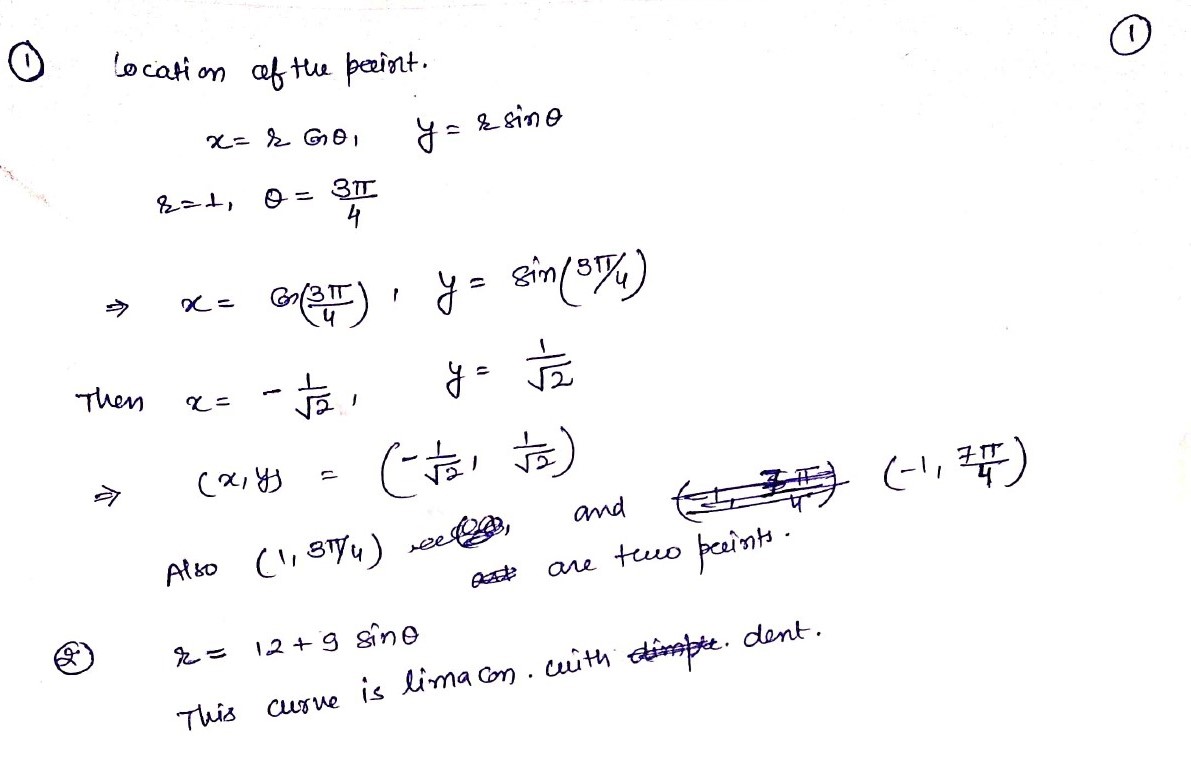 ① Location of the point. ①
x = r cosθ, y = r sinθ
r = 1, θ = 3π/4
⇒ x = cos(3π/4), y = sin(3π/4)
Then x = -1/√2, y = 1/√2
⇒ (x, y) = (-1/√2, 1/√2)
Also (1, 3π/4) and (-1, 7π/4)
are two points.
② r = 12 + 9 sinθ
This curve is limacon. with dent.